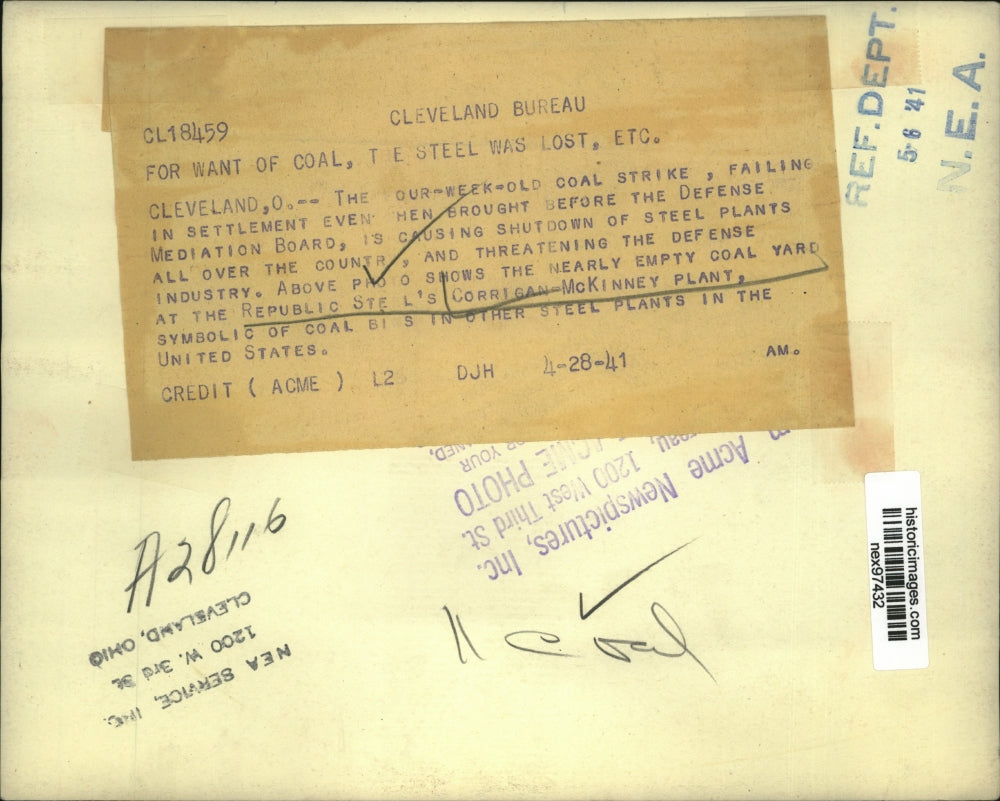 CLEVELAND BUREAU
CL18459
FOR WANT OF COAL, T E STEEL WAS LOST, ETC.
CLEVELAND,O.-- THE OUR-WEEK-OLD COAL STRIKE , FAILING
IN SETTLEMENT EVEN HEN BROUGHT BEFORE THE DEFENSE
MEDIATION BOARD, IS CAUSING SHUTDOWN OF STEEL PLANTS
ALL OVER THE COUNTR , AND THREATENING THE DEFENSE
INDUSTRY. ABOVE PHOTO SHOWS THE NEARLY EMPTY COAL YARD
AT THE REPUBLIC STE L'S CORRIGAN-MCKINNEY PLANT,
SYMBOLIC OF COAL BI S IN OTHER STEEL PLANTS IN THE
UNITED STATES.
CREDIT ( ACME ) L2 DJH 4-28-41 AM.
REF. DEPT.
5·6 '41
N. E. A.
OR YOUR
ACME PHOTO
1200 West Third St.
Acme Newspictures, Inc.
A28116
NEA SERVICE, INC.
1200 W. 3rd St
CLEVELAND, OHIO
Coal
historicimages.com
nex97432